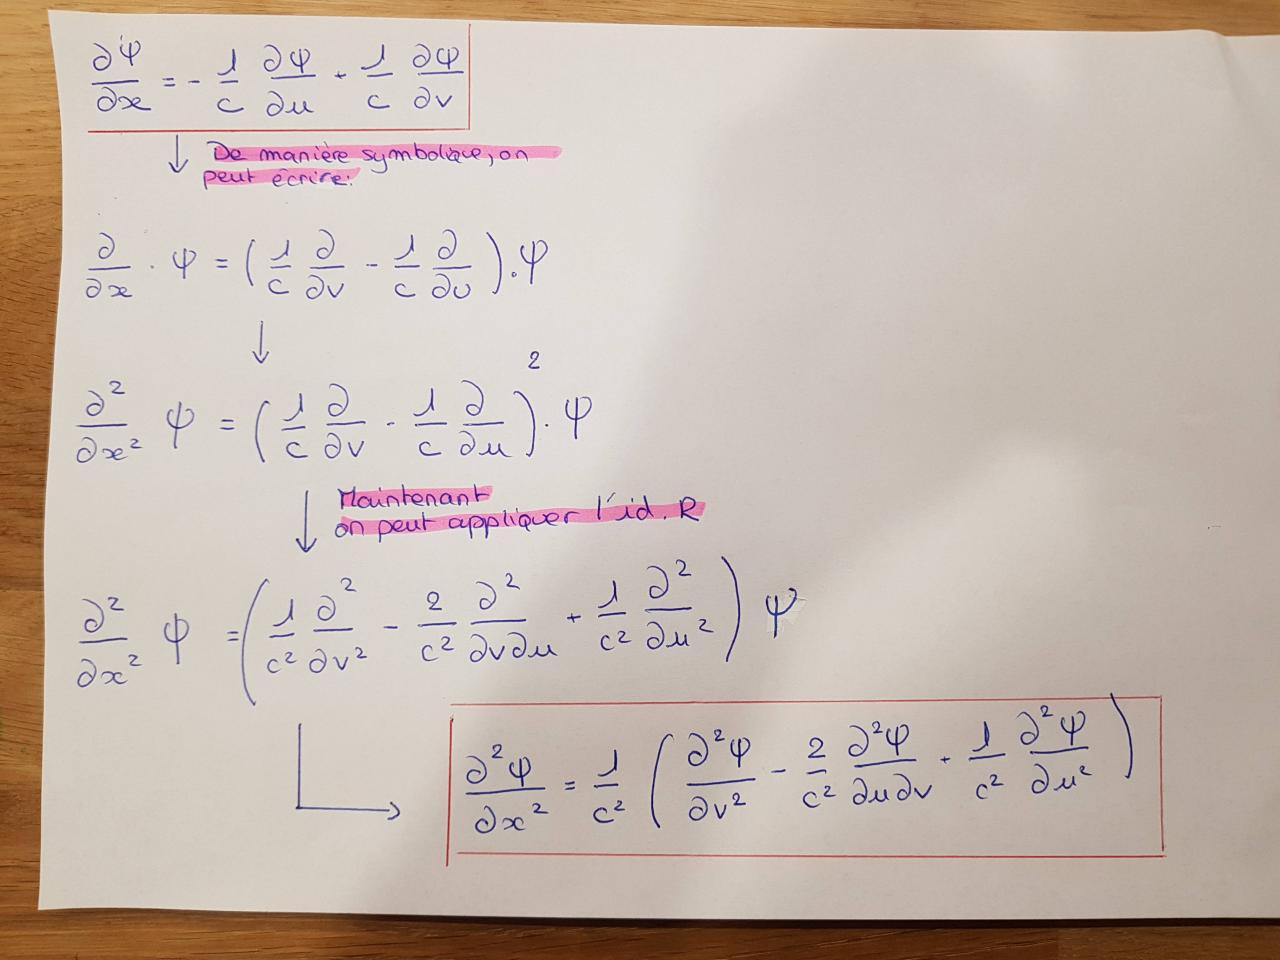 ∂φ/∂x = - 1/c ∂φ/∂u + 1/c ∂φ/∂v
De manière symbolique, on
peut écrire:
∂/∂x . φ = ( 1/c ∂/∂v - 1/c ∂/∂u ) . φ
∂²/∂x² φ = ( 1/c ∂/∂v - 1/c ∂/∂u )² . φ
Maintenant
on peut appliquer l'id. R
∂²/∂x² φ = ( 1/c² ∂²/∂v² - 2/c² ∂²/∂v∂u + 1/c² ∂²/∂u² ) φ
∂²φ/∂x² = 1/c² ( ∂²φ/∂v² - 2/c² ∂²φ/∂u∂v + 1/c² ∂²φ/∂u² )